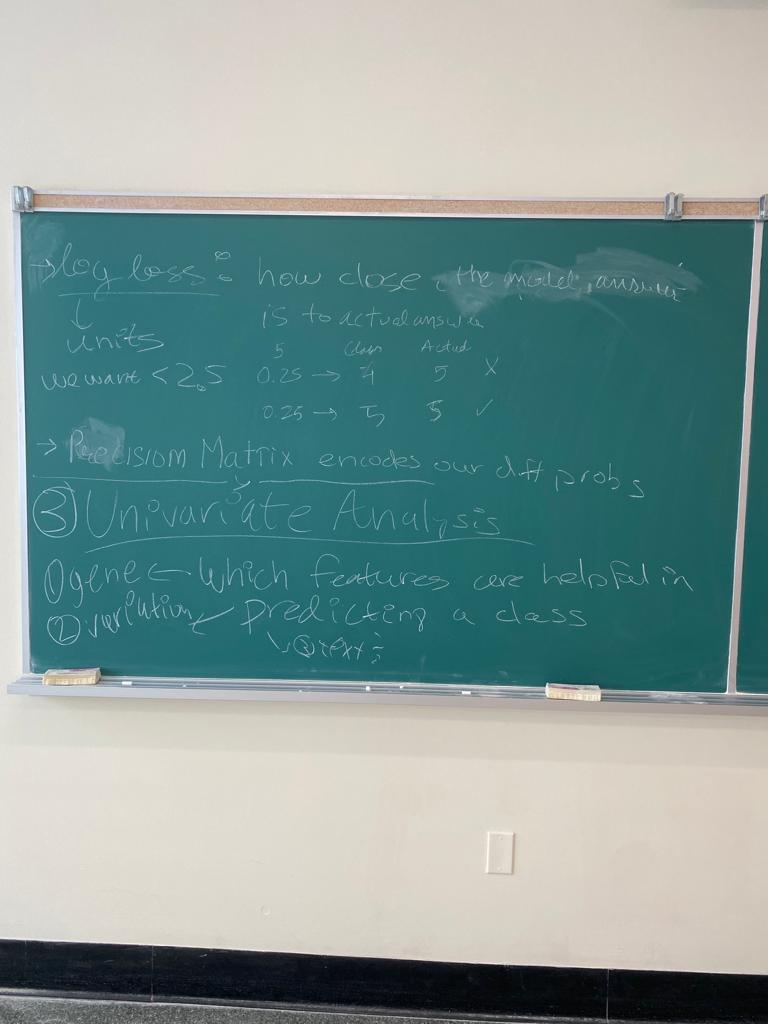 → log loss : how close the model answer
is to actual answer
↓
units
we want < 2.5
5 Class Actual
0.25 → 4 5 X
0.25 → 5 5 ✓
→ Precision Matrix encodes our diff probs
③ Univariate Analysis
① gene ← Which features are helpful in
② variation ← predicting a class
③ text :